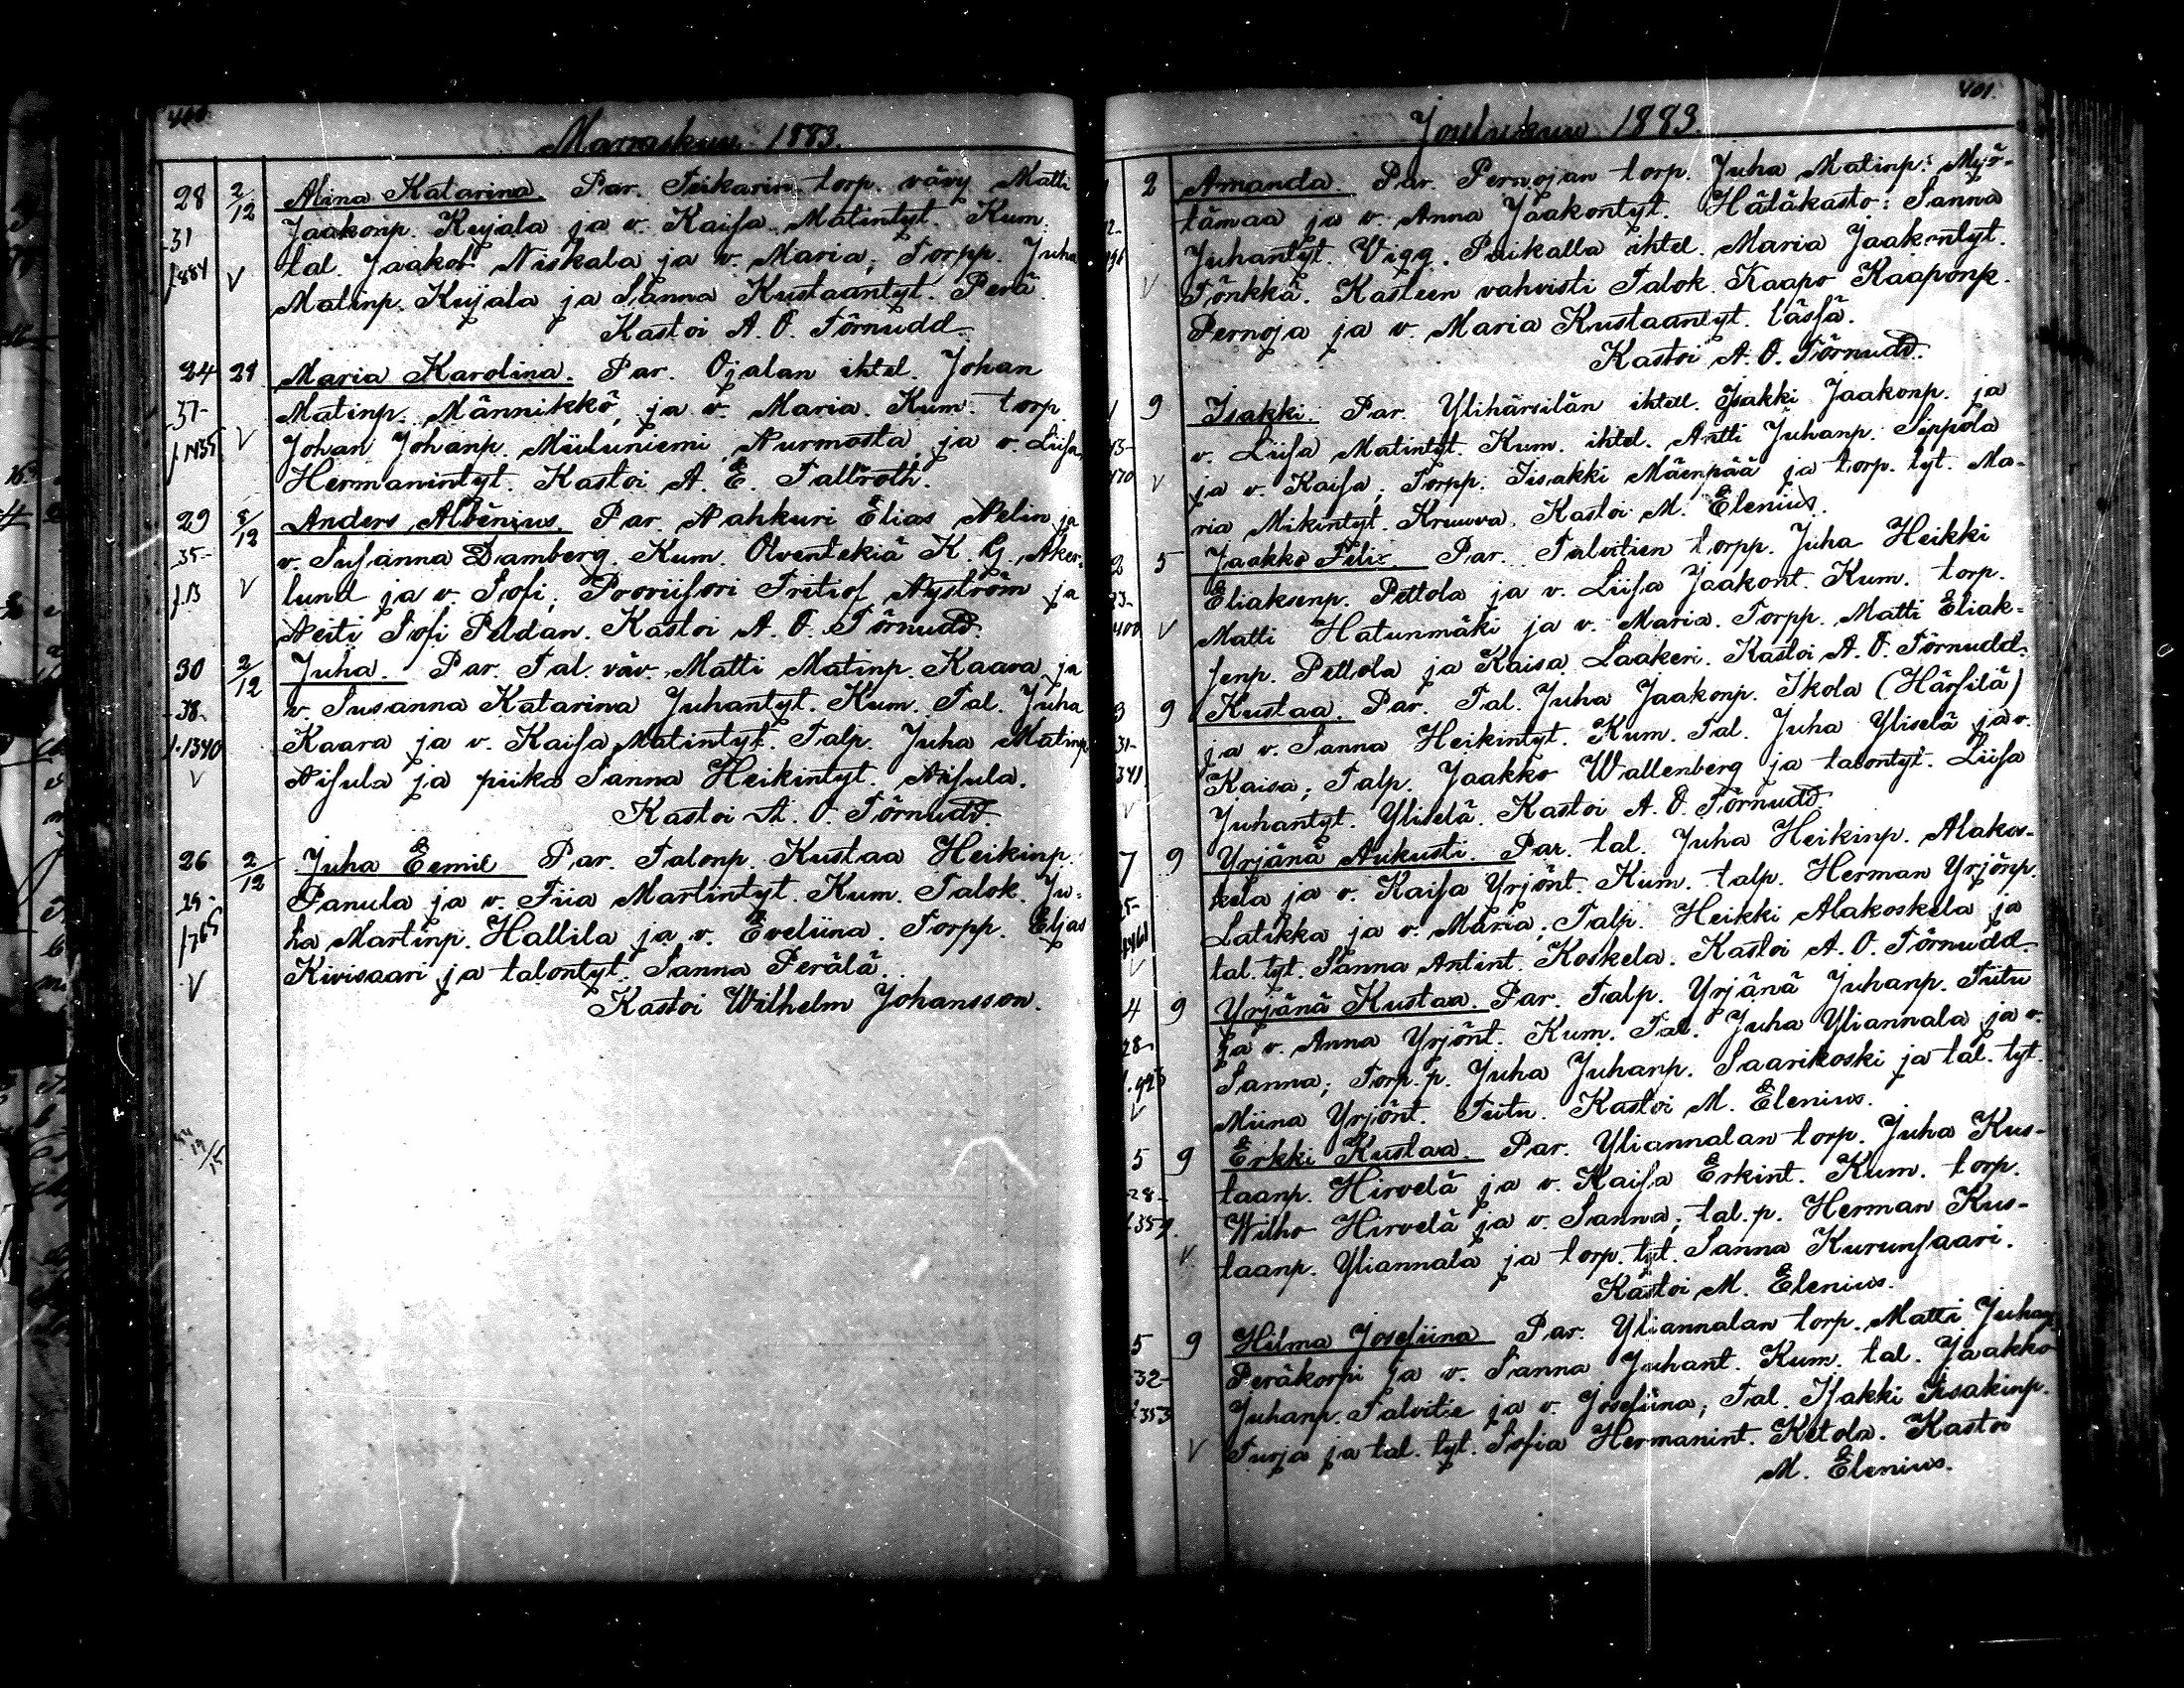 400.
Marraskuu 1883.
28 2/12 Miina Katarina. Par. Tiikarin torp. vävy Matti
31 Jaakonp. Kujala ja v. Kaisa Matintyt. Kum.
f. 484 V tal. Jaakob Niskala ja v. Maria; Torpp. Juha
Matinp. Kujala ja Sanna Kustaantyt. Perä
Kastoi A. O. Törnudd.
24 28 Maria Karolina. Par. Ojalan ihtel. Johan
37- Matinp. Männikkö, ja v. Maria. Kum. torp.
f. 1435 V Johan Johanp. Miiluniemi, Nurmosta, ja v. Liisa
Hermanintyt. Kastoi A. E. Tallroth.
29 8/12 Anders Albénius. Par. Nahkuri Elias Nelin ja
35- v. Susanna Damberg. Kum. Olventekiä K. G. Aker-
f. 13 V lund ja v. Sofi; Proviisori Fritiof Nyström ja
Neiti Sofi Peldan. Kastoi A. O. Törnudd.
30 2/12 Juha. Par. Tal. väv. Matti Matinp. Kaara ja
38. v. Susanna Katarina Juhantyt. Kum. Tal. Juha
f. 1340 Kaara ja v. Kaisa Matintyt. Talp. Juha Matinp.
V Nisula ja piika Sanna Heikintyt. Nisula.
Kastoi A. O. Törnudd.
26 2/12 Juha Eemil Par. Talonp. Kustaa Heikinp.
29- Panula ja v. Fiia Martintyt. Kum. Talok. Ju-
f. 765 ha Martinp. Hallila ja v. Eveliina. Torpp. Eljas
V Kivisaari ja talontyt. Sanna Perälä.
Kastoi Wilhelm Johansson.
401.
Joulukuu 1883.
1 2 Amanda. Par. Pernojan torp. Juha Matinp. Myl-
tämaa ja v. Anna Jaakontyt. Hätäkasto: Sanna
Juhantyt. Vigg. Paikalla ihtel. Maria Jaakontyt.
V Tönkkä. Kasteen vahvisti Talok. Kaapo Kaaponp.
Pernoja ja v. Maria Kustaantyt. läsfä.
Kastoi A. O. Törnudd.
1 9 Isakki. Par. Ylihärsilän ihtell. Isakki Jaakonp. ja
v. Liisa Matintyt. Kum. ihtel. Antti Juhanp. Seppola
V ja v. Kaisa; Torpp. Iisakki Mäenpää ja torp. tyt. Ma-
ria Mikintyt. Kruuva. Kastoi M. Elenius.
2 5 Jaakko Felix. Par. Talvitien torpp. Juha Heikki
23- Eliaksenp. Pettola ja v. Liisa Jaakont. Kum. torp.
400 V Matti Hatunmäki ja v. Maria. Torpp. Matti Eliak-
senp. Pettola ja Kaisa Laakeri. Kastoi A. O. Törnudd.
3 9 Kustaa. Par. Tal. Juha Jaakonp. Ikola (Härsilä)
31- ja v. Sanna Heikintyt. Kum. Tal. Juha Yliselä ja v.
341 Kaisa; Talp. Jaakko Wallenberg ja talontyt. Liisa
V Juhantyt. Yliselä. Kastoi A. O. Törnudd.
7 9 Yrjänä Aukusti. Par. tal. Juha Heikinp. Alakos-
kela ja v. Kaisa Yrjönt. Kum. talp. Herman Yrjönp.
Latikka ja v. Maria; Talp. Heikki Alakoskela ja
V tal. tyt. Sanna Antint. Koskela. Kastoi A. O. Törnudd.
4 9 Yrjänä Kustaa. Par. Talp. Yrjänä Juhanp. Tiitu
28- ja v. Anna Yrjönt. Kum. Tal. Juha Yliannala ja v.
Sanna; Torp. p. Juha Juhanp. Saarikoski ja tal. tyt.
V Miina Yrjönt. Tiitu. Kastoi M. Elenius.
5 9 Erkki Kustaa. Par. Yliannalan torp. Juha Kus-
28- taanp. Hirvelä ja v. Kaisa Erkint. Kum. torp.
Wilho Hirvelä ja v. Sanna; tal. p. Herman Kus-
V taanp. Yliannala ja torp. tyt. Sanna Kurunsaari.
Kastoi M. Elenius.
5 9 Hilma Josefiina Par. Yliannalan torp. Matti Juhanp.
32- Peräkorpi ja v. Sanna Juhant. Kum. tal. Jaakko
353 Juhanp. Talvitie ja v. Josefiina; Tal. Isakki Iisakinp.
V Turja ja tal. tyt. Sofia Hermanint. Ketola. Kastoi
M. Elenius.